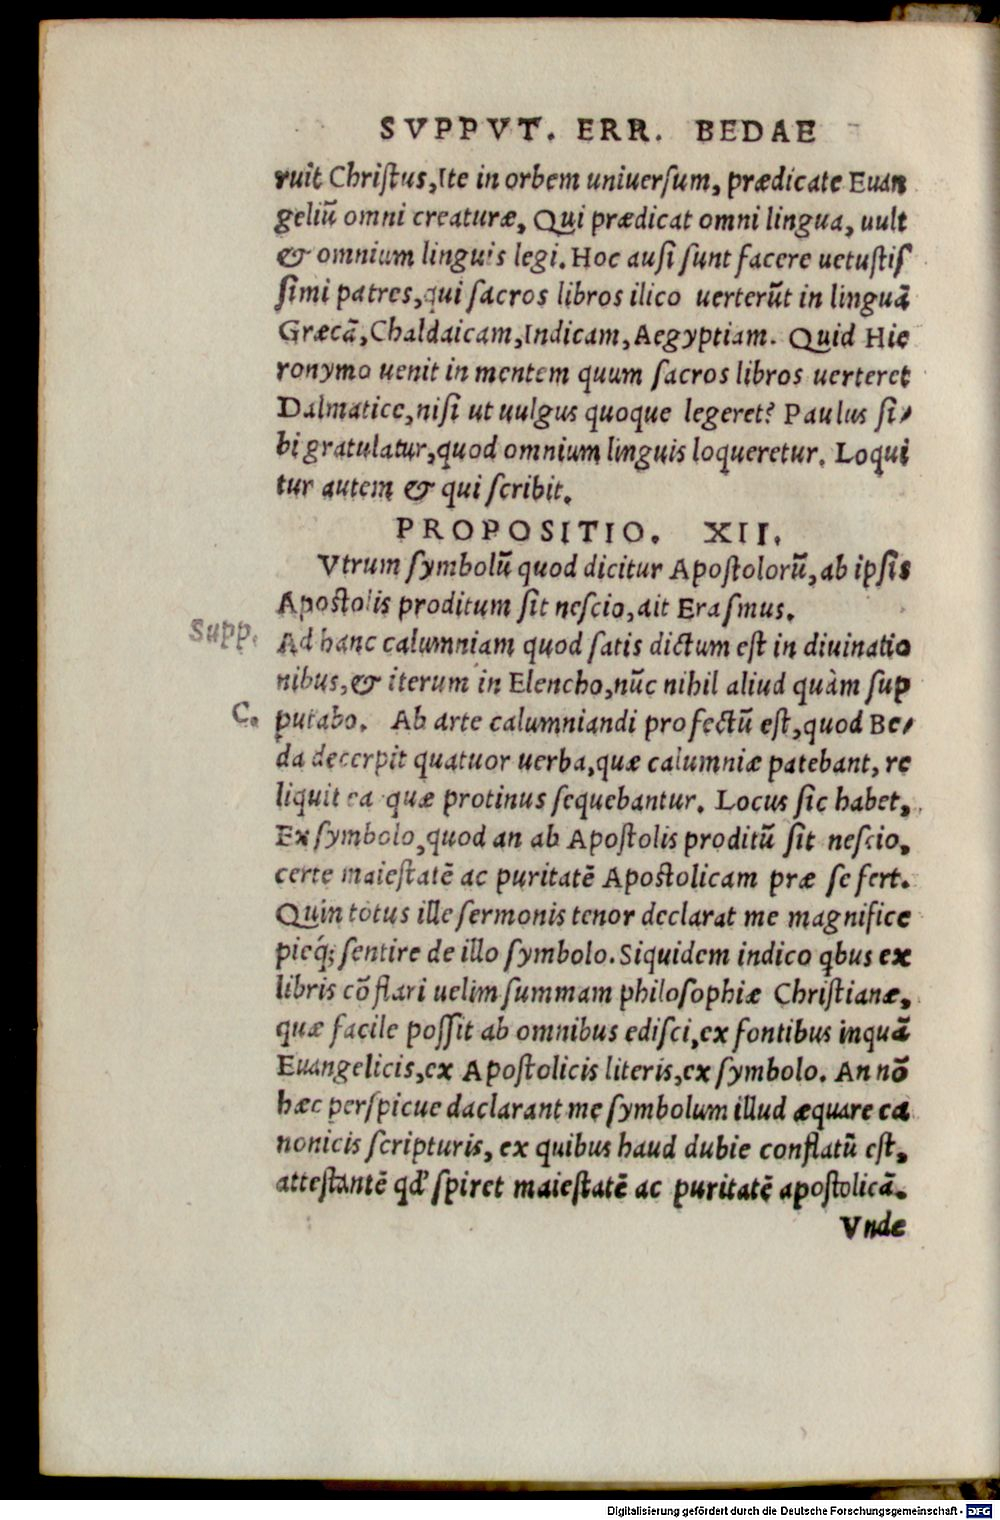 SVPPVT. ERR. BEDAE
ruit Christus, Ite in orbem uniuersum, prædicate Euan
geliũ omni creaturæ, Qui prædicat omni lingua, uult
& omnium linguis legi. Hoc ausi sunt facere uetustis
simi patres, qui sacros libros ilico uerterũt in linguã
Græcã, Chaldaicam, Indicam, Aegyptiam. Quid Hie
ronymo uenit in mentem quum sacros libros uerteret
Dalmatice, nisi ut uulgus quoque legeret? Paulus si-
bi gratulatur, quod omnium linguis loqueretur. Loqui
tur autem & qui scribit.
PROPOSITIO. XII.
Vtrum symbolũ quod dicitur Apostolorũ, ab ipsis
Apostolis proditum sit nescio, ait Erasmus.
Supp. Ad hanc calumniam quod satis dictum est in diuinatio
nibus, & iterum in Elencho, nũc nihil aliud quàm sup
C. putabo. Ab arte calumniandi profectũ est, quod Be-
da decerpit quatuor uerba, quæ calumniæ patebant, re
liquit ea quæ protinus sequebantur. Locus sic habet,
Ex symbolo, quod an ab Apostolis proditũ sit nescio,
certe maiestatẽ ac puritatẽ Apostolicam præ se fert.
Quin totus ille sermonis tenor declarat me magnifice
pieq́; sentire de illo symbolo. Siquidem indico qbus ex
libris cõflari uelim summam philosophiæ Christianæ,
quæ facile possit ab omnibus edisci, ex fontibus inquã
Euangelicis, ex Apostolicis literis, ex symbolo. An nõ
hæc perspicue daclarant me symbolum illud æquare ca
nonicis scripturis, ex quibus haud dubie conflatũ est,
attestantẽ qd' spiret maiestatẽ ac puritatẽ apostolicã.
Vnde
Digitalisierung gefördert durch die Deutsche Forschungsgemeinschaft - DFG